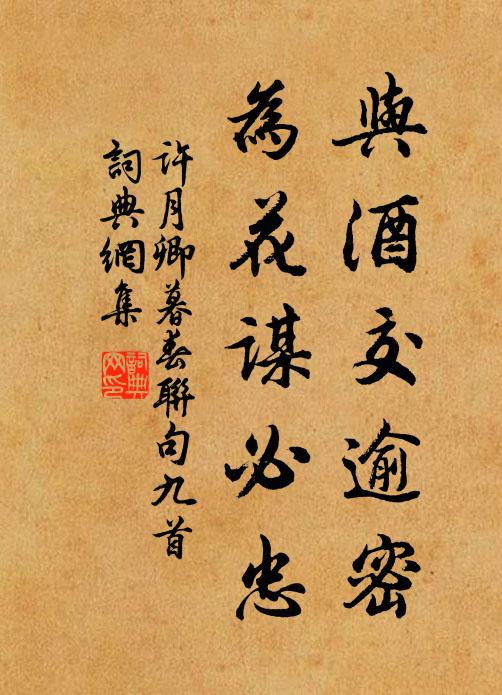 與酒交逾密
為花謀必忠
許月卿暮春聯句九首
詞典網集
詞典網印